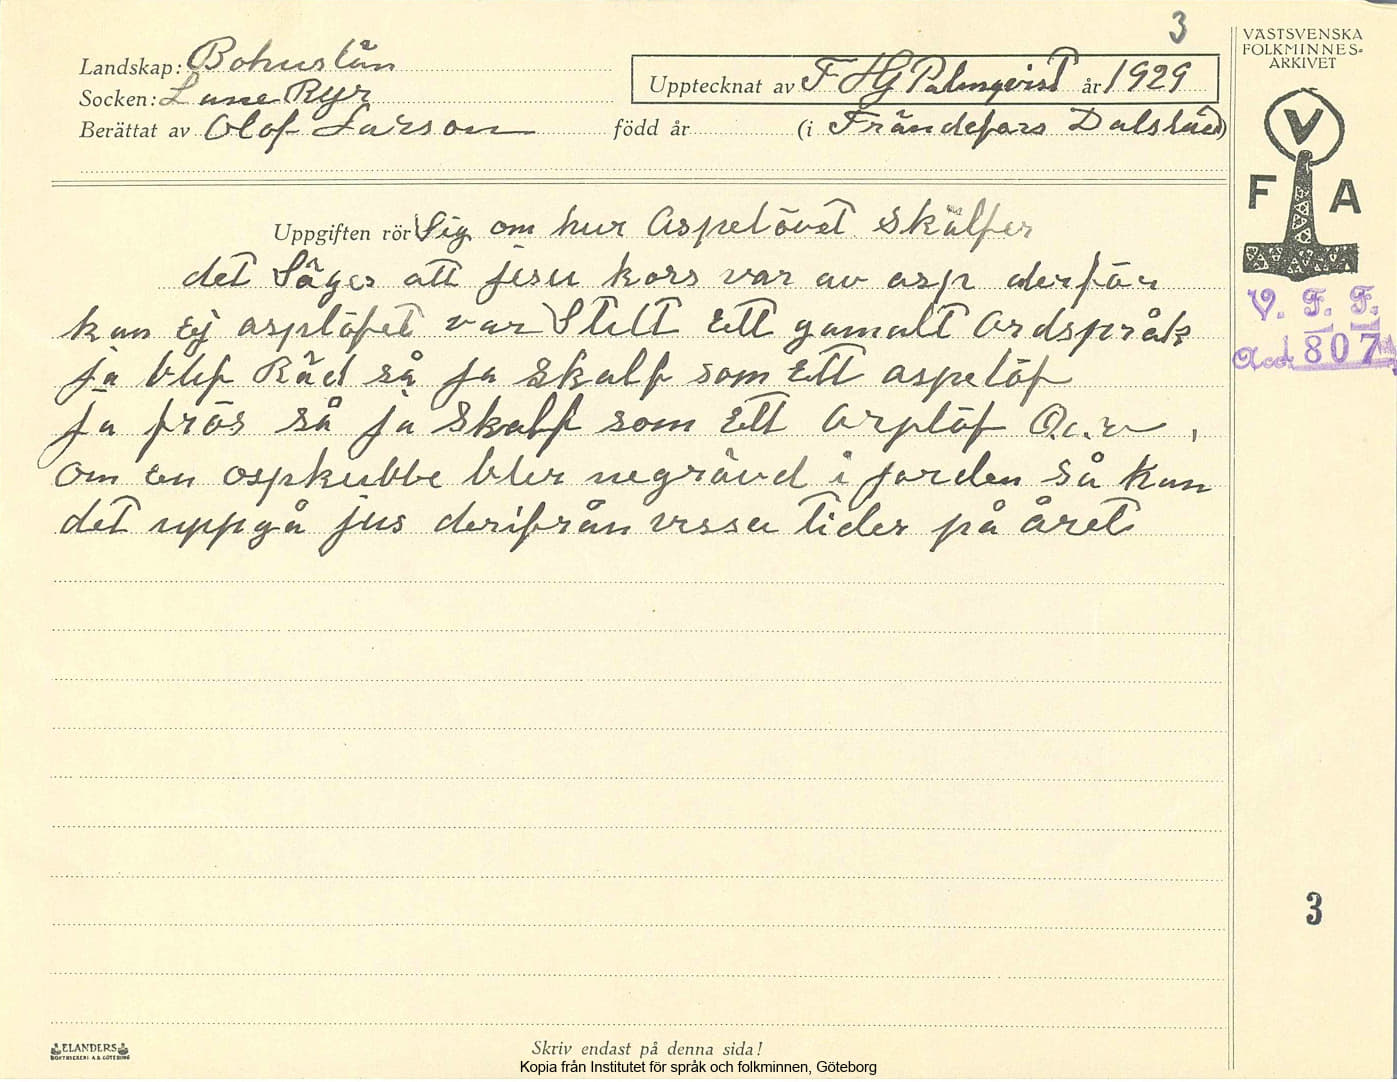 3
VÄSTSVENSKA
FOLKMINNES-
ARKIVET
Landskap: Bohuslän
Upptecknat av F HG Palmqvist år 1929
Socken: Lane Ryr
Berättat av Olof Larson född år (i Frändefors Dalsland)
V
F A
Uppgiften rör Sig om hur Aspelövet Skälfer
det Säges att jesu kors var av asp derför
V. F. F.
kan Ej asplöfet var Stilt Ett gamalt Ordspråk
Acc. 807
ja blef Räd så ja Skalf som Ett aspelöf
ja frös så ja Skalf som Ett Asplöf O.s.v.
om en aspkubbe bler negrävd i jorden så kan
det uppgå jus derifrån vissa tider på året
3
ELANDERS
BOKTRYCKERI A.B. GÖTEBORG
Skriv endast på denna sida!
Kopia från Institutet för språk och folkminnen, Göteborg